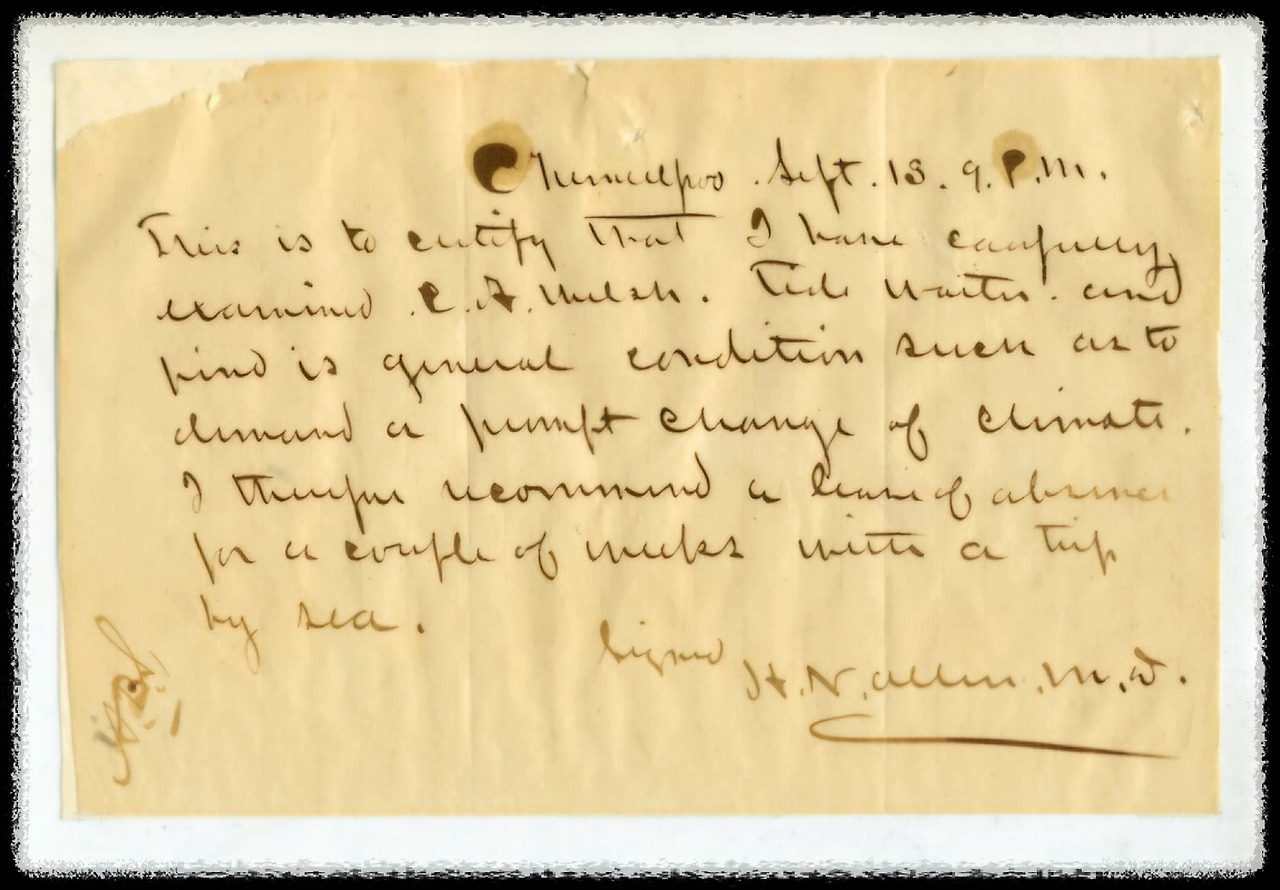 Chemulpoo. Sept. 13. 9. P.M.
This is to certify that I have carefully
examined C. A. Welsh. Tide Waiter. and
find is general condition such as to
demand a prompt change of climate.
I therefore recommend a leave of absence
for a couple of weeks with a trip
by sea.
Signed
H. N. Allen. M.D.